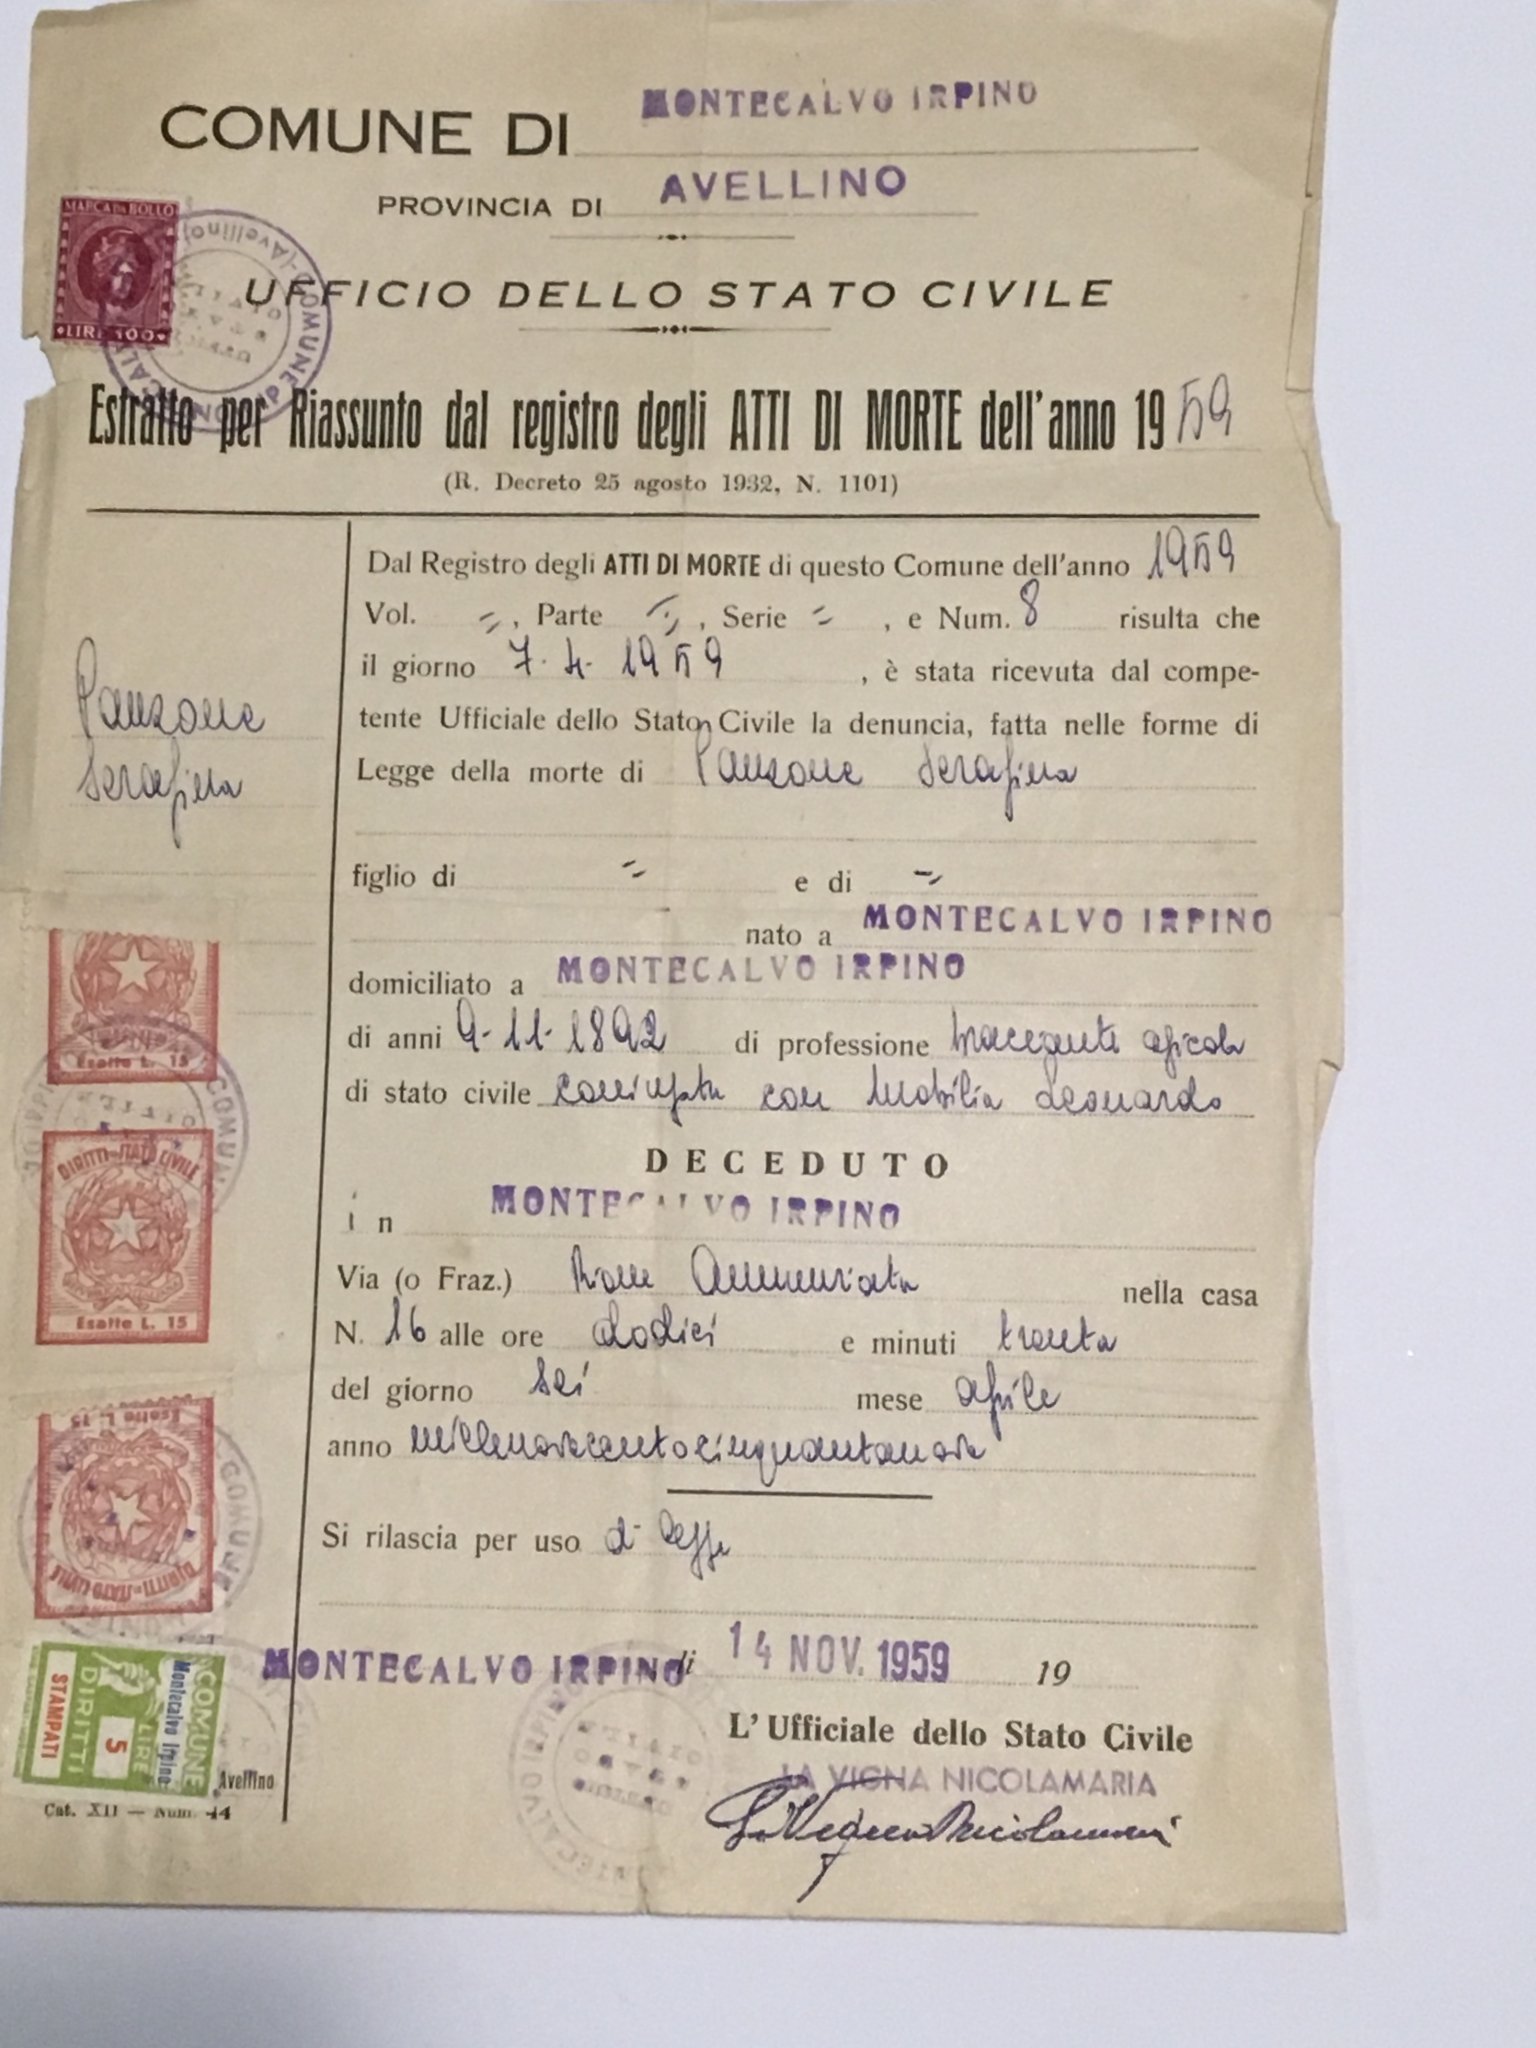 COMUNE DI MONTECALVO IRPINO
PROVINCIA DI AVELLINO
MARCA DA BOLLO
LIRE 100
UFFICIO DELLO STATO CIVILE
Estratto per Riassunto dal registro degli ATTI DI MORTE dell'anno 1959
(R. Decreto 25 agosto 1932, N. 1101)
Panzone
Serafina
Dal Registro degli ATTI DI MORTE di questo Comune dell'anno 1959
Vol. =, Parte =, Serie =, e Num. 8 risulta che
il giorno 7-4-1959, è stata ricevuta dal compe-
tente Ufficiale dello Stato Civile la denuncia, fatta nelle forme di
Legge della morte di Panzone Serafina
figlio di = e di =
nato a MONTECALVO IRPINO
domiciliato a MONTECALVO IRPINO
di anni 9-11-1892 di professione bracciante agricola
di stato civile coniugata con Mobilia Leonardo
DECEDUTO
in MONTECALVO IRPINO
Via (o Fraz.) Rione Annunziata nella casa
N. 16 alle ore dodici e minuti trenta
del giorno sei mese aprile
anno millenovecentocinquantanove
Si rilascia per uso di legge
MONTECALVO IRPINO li 14 NOV. 1959 19
L'Ufficiale dello Stato Civile
LA VIGNA NICOLAMARIA
La Vigna Nicolamaria
Esatte L. 15
DIRITTI DI STATO CIVILE
Esatte L. 15
Esatte L. 15
DIRITTI DI STATO CIVILE
COMUNE
Montecalvo Irpino
LIRE 5
DIRITTI
STAMPATI
Avellino
Cat. XII — Num. 44